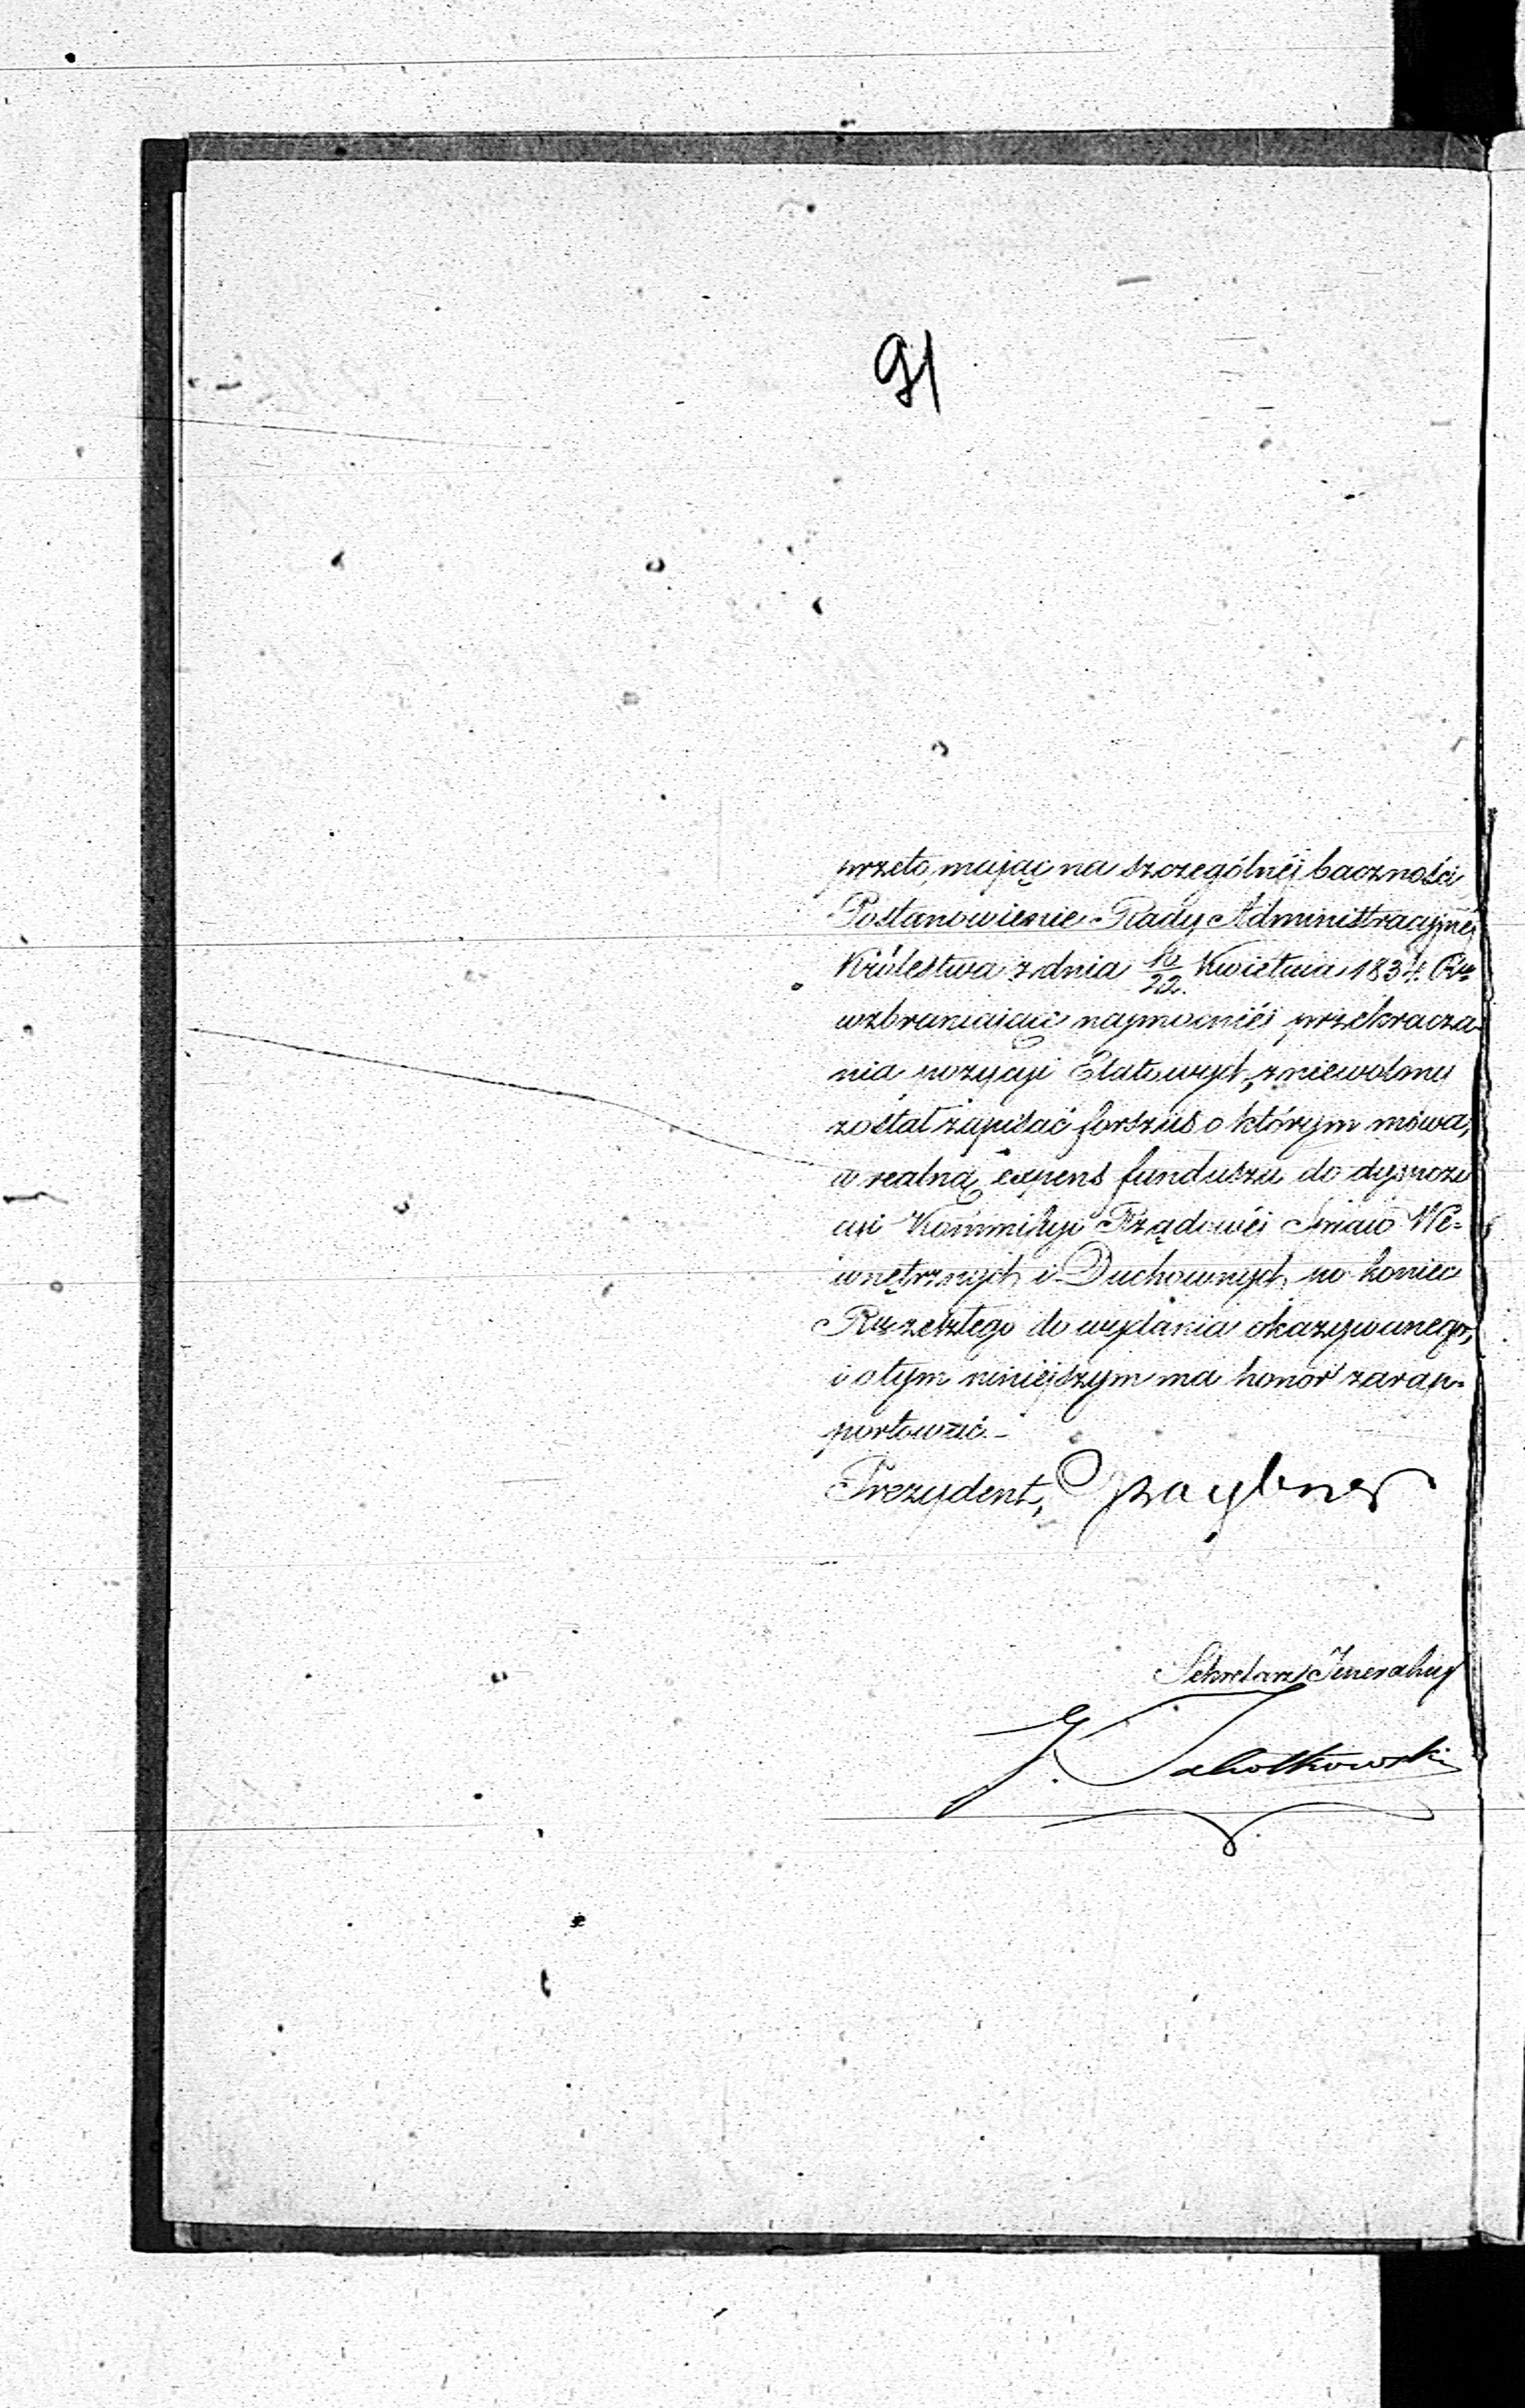 91
przeto, mając na szczególnéj baczności
Postanowienie Rady Administracyjnéj
Królestwa z dnia 10/22. Kwietnia 1834. Ru
wzbraniaiące najmocniéi przekracza-
nia pozycyi Etatowych, zniewolony
został zapisać forszus o którym mowa,
w realną expens funduszu do dyspozy
cyi Kommissyi Rządowéi Spraw We-
wnętrznych i Duchownych na koniec
Ru zeszłego do wydania okazywanego,
i o tym niniejszym ma honor zarap-
portować.-
Prezydent, Graybner
Sekretarz Jeneralny